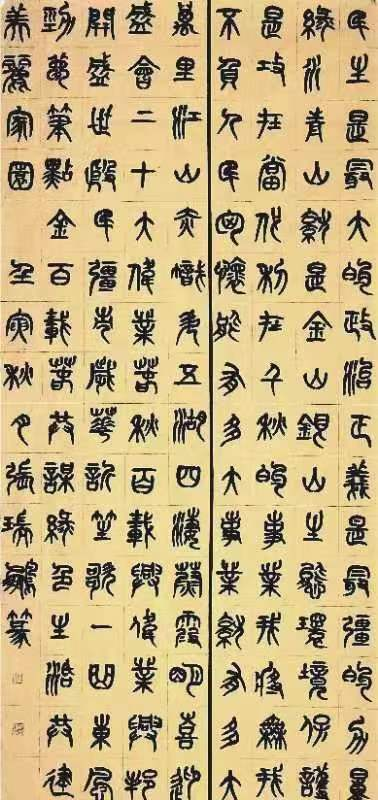 民生是最大的政治正義是最彊的力量
緑水青山就是金山銀山生態環境保護
是功在當代利在千秋的事業我將無我
不負人民胸懷能有多大事業就有多大
萬里江山赤幟五湖四海蔚霞明喜迎
盛會二十大偉業春秋百載興偉業興邦
開盛世殷民彊歲華新笙歌一曲東風
勁夢筆點金百載春共謀緑色生活共建
美麗家園 壬寅秋月張瑞篆